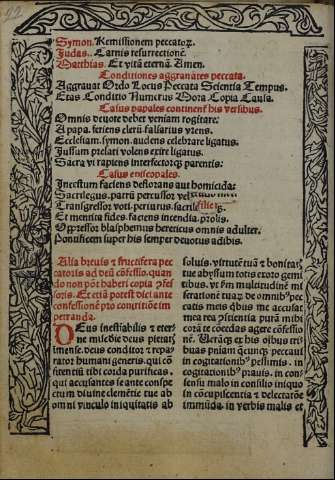 Symon. Remissionem peccatoꝝ.
Judas. Carnis resurrectionē.
Matthias. Et vitā eternā. Amen.
Conditiones aggrauātes peccata.
Aggrauat Ordo Locus Peccata Scientia Tempus.
Etas Conditio Numerus Mora Copia Causa.
Casus papales continenť his versibus.
Omnis deuote debet veniam rogitare:
A papa, feriens clerū falsarius vrens.
Ecclesiam. symon. audens celebrare ligatus.
Jussum prelati volens exire ligatus.
Sacra vi rapiens interfectorqꝫ parentis:
Casus episcopales.
Incestum faciens deflorans aut homicida:
Sacrilegus. patrū percussor vel
Transgressor voti. periurus. sacrilegꝫ
Et mentita fides. faciens incendia. ꝓlis.
Oppressor blasphemus hereticus omnis adulter.
Pontificem super his semper deuotus adibis.
Alia breuis ⁊ fructifera pec
catoris ad deū cōfessio. quan
do non pōt haberi copia ꝯfes
soris. Et etiā potest dici ante
confessionē pro contritiōe im
petranda.
DEus ineffabilis ⁊ eter
ne miserdie deus pietatꝭ
imense. deus conditor ⁊ repa
rator humani generis. qui cō
fitentiū tibi corda purificas.
qui accusantes se ante conspe
ctum diuine clemētie tue ab
omni vinculo iniquitatis ab
soluis. virtutē tuā ⁊ bonitatꝭ
tue abyssum totis exoro gemi
tibus. vt ꝑm multitudinē mi
serationū tuaꝝ. de omnibꝰ pec
catis meis qbus me accusat
mea rea ꝯscientia purā mihi
corā te cōcedas agere cōfessio
nē. Verāqꝫ ex his oībus tri
buas pniam qcunqꝫ peccaui
in cogitatioībꝰ pessimis. in
cogitatioībus prauis. in con
sensu malo in consilio iniquo
in cōcupiscentia ⁊ delectatōne
immūda. in verbis malis et